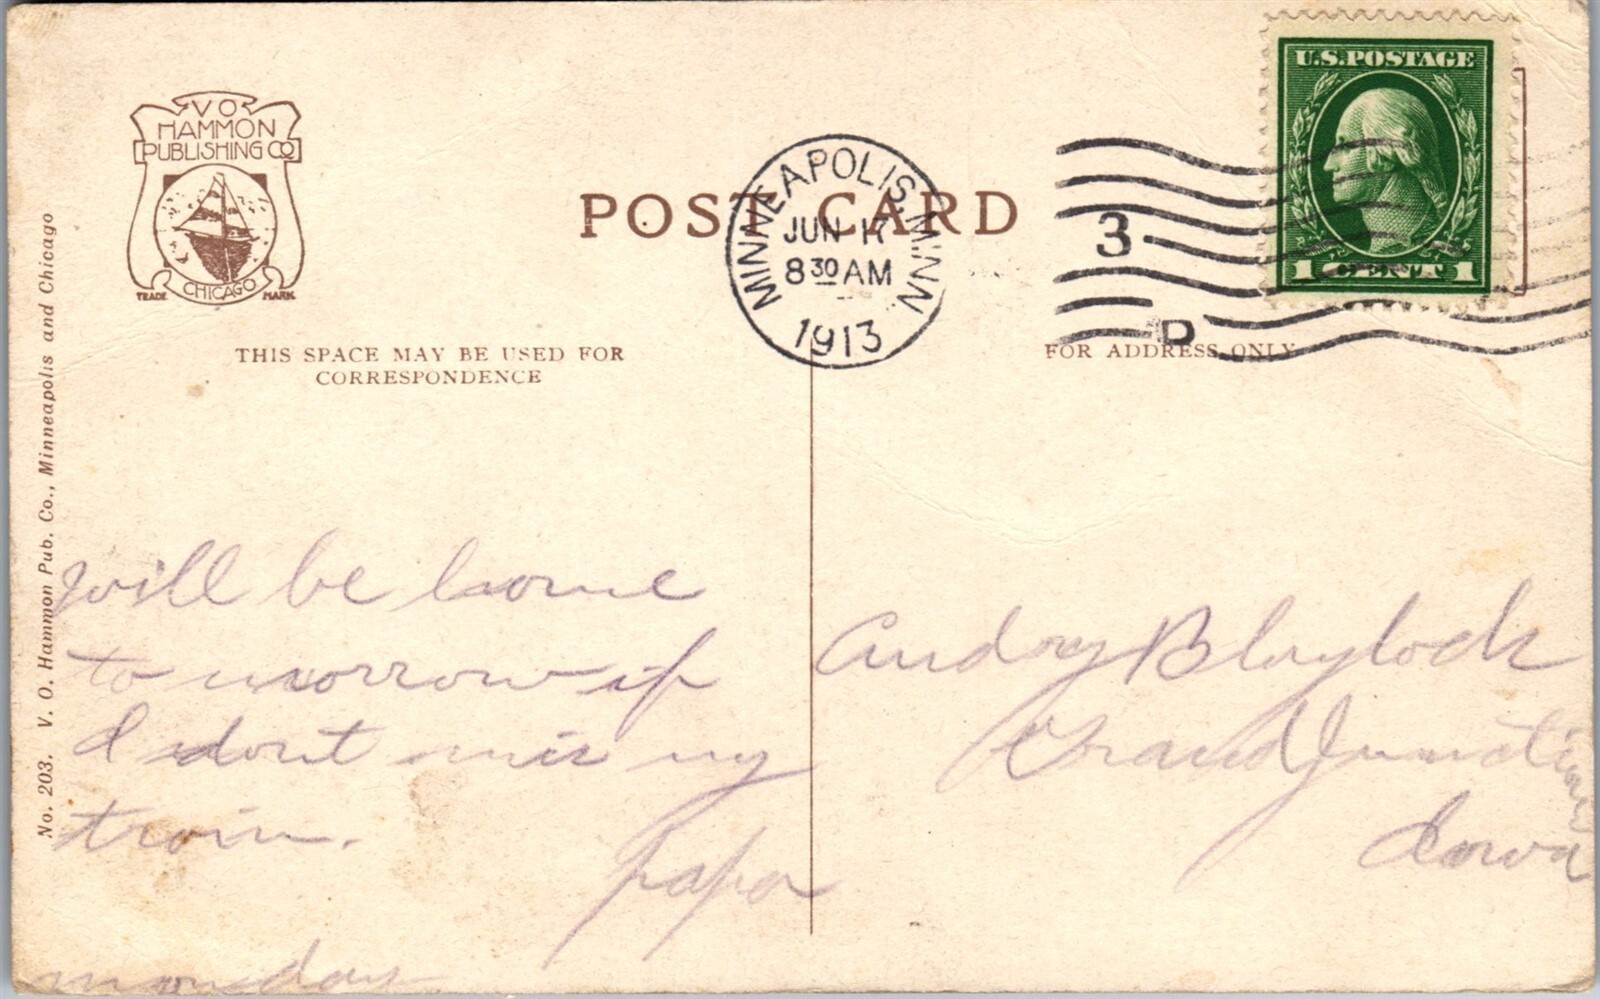 V O
HAMMON
PUBLISHING CO
TRADE CHICAGO MARK
POST CARD
MINNEAPOLIS, MINN.
JUN 17
8 30 AM
1913
3
D
U.S. POSTAGE
1 CENT 1
THIS SPACE MAY BE USED FOR
CORRESPONDENCE
FOR ADDRESS ONLY
No. 203. V. O. Hammon Pub. Co., Minneapolis and Chicago
will be home
to morrow if
I dont mis my
train.
papa
monday
Audry Blaylock
Grand Junction
Iowa